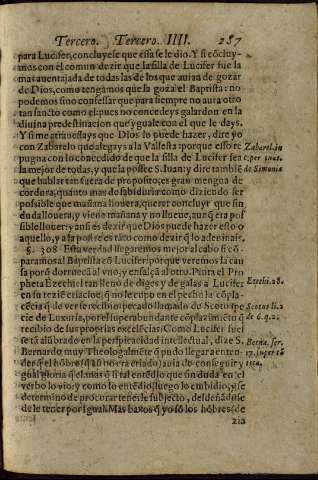 Tercero. Tercero. IIII. 287
para Lucifer, concluyese que essa se le dio. Y si cõcluy-
mos con el comun dezir que la silla de Lucifer fue la
mas auentajada de todas las de los que auian de gozar
de Dios, como tengamos que la goza el Baptista: no
podemos sino confessar que para siempre no aura otro
tan sancto como el: pues no concedeys galardon en la
diuina predestinacion que yguale con el que le days.
Y si me atrauessays que Dios lo puede hazer, dire yo
con Zabarelo que alegays a la Vallesta porque esso re
pugna con lo concedido de que la silla de Lucifer sea
la mejor de todas, y que la possee S. Iuan: y dire tambiẽ
que hablar tan fuera de proposito, es gran mengua de
cordura, quanto mas de sabiduria como diziendo ser
possible que mañana llouera, querer concluyr que sin
duda llouera; y viene mañana y no llueue, aunq̃ era pos
sible llouer: y ansi es dezir que Dios puede hazer esto o
aquello, y a la postre es tãto como dezir q̃ lo adeuinais.
Zabarel. in
c. per tuas.
de Simonia
§. 308 Esta verdad llegaremos mejor al cabo si cõ-
paramos al Baptista cõ Lucifer: porque veremos la cau
sa porq̃ derrueca al vno, y ensalça al otro. Pinta el Pro
pheta Ezechiel tan lleno de diges y de galas a Lucifer
en su rezié criaciõ: que
cẽcia q̃ de verse recibio: pecado llamado de Scoto spe
cie de Luxuria, por el superabundante cõplazimiẽto q̃
recibio de sus proprias excelẽcias: Como Lucifer fue
se tã alũbrado en la perspicacidad intellectual, dize S.
Bernardo muy Theologalmẽte q̃ pudo llegar a enten-
der q̃ el hõbre (q̃ aũ no era criado) auia de conseguir
igual gloria q̃
verbo lo vio: y como lo entẽdio, luego lo embidio, y se
determino de procurar tenerle subjecto, desdeñãdose
de le tener por igual. Mas baxos q̃ yo sõ los hõbres (de
Ezechi. 28.
Scotus li. 2
d. 6. q. 2.
Berna. ser.
17. super cã
tica.
zia